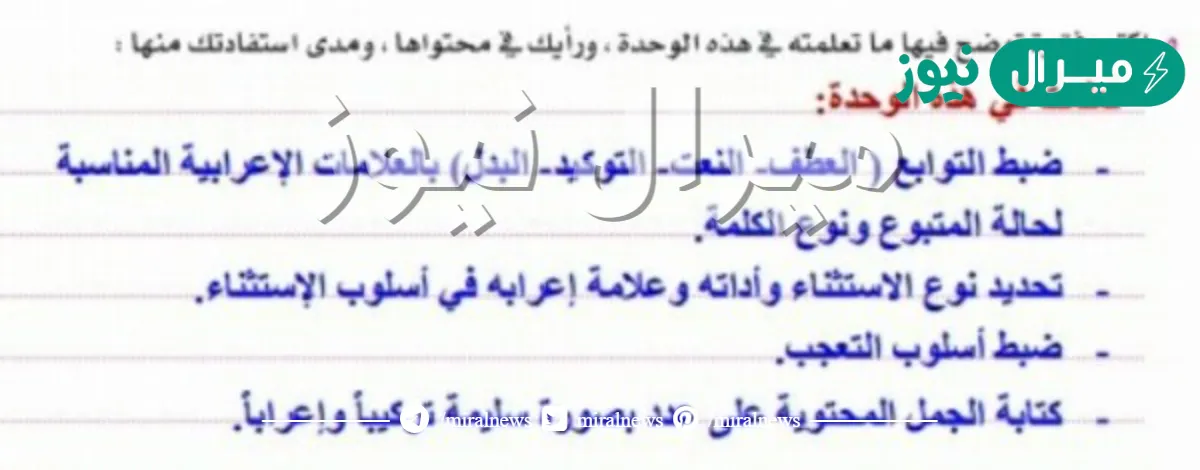 فيها ما تعلمته في هذه الوحدة، ورأيك في محتواها، ومدى استفادتك منها:
ميرال نيوز
في هذه الوحدة:
- ضبط التوابع (العطف- النعت- التوكيد- البدل) بالعلامات الإعرابية المناسبة
لحالة المتبوع ونوع الكلمة.
ميرال نيوز
- تحديد نوع الاستثناء وأداته وعلامة إعرابه في أسلوب الإستثناء.
- ضبط أسلوب التعجب.
- كتابة الجمل المحتوية على تركيباً وإعراباً.
/miralnews miralnews /miralnews